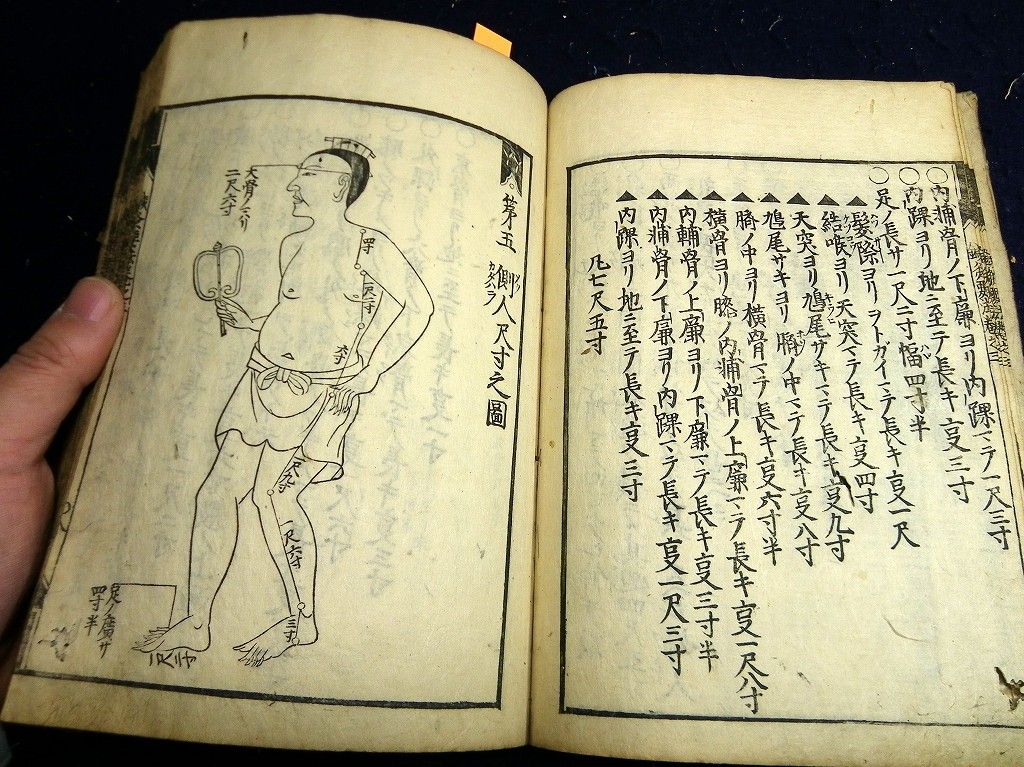 ○内滿骨ノ下廉ヨリ内踝マテ一尺三寸
○内踝ヨリ地ニ至テ長キ亥三寸
○足ノ長サ一尺二寸幅四寸半
▲髮際ヨリヲトガイマテ長キ亥一尺
▲結喉ヨリ天突マテ長キ亥四寸
▲天突ヨリ鳩尾サキマテ長キ亥九寸
▲鳩尾サキヨリ臍ノ中マテ長キ亥八寸
▲臍ノ中ヨリ横骨マテ長キ亥六寸半
▲横骨ヨリ膝ノ内滿骨ノ上廉マテ長キ亥一尺八寸
▲内輔骨ノ上廉ヨリ下廉マテ長キ亥三寸半
▲内滿骨ノ下廉ヨリ内踝マテ長キ亥一尺三寸
▲内踝ヨリ地ニ至テ長キ亥三寸
凡七尺五寸
第五 側人尺寸之圖
カタハラ
大骨ノマハリ
二尺六寸
四寸
一尺二寸
六寸
一尺九寸
一尺六寸
三寸
足ノ廣サ
四寸半